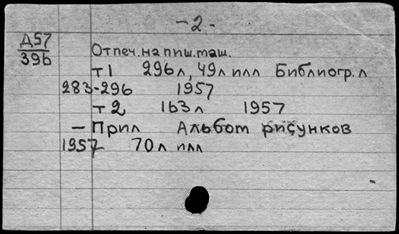 - 2 -
Д57
396
Отпеч. на пиш. маш.
т1 296 л, 49 л илл Библиогр. л
283-296 1957
т2 163 л 1957
— Прил Альбом рисунков
1957 70 л илл